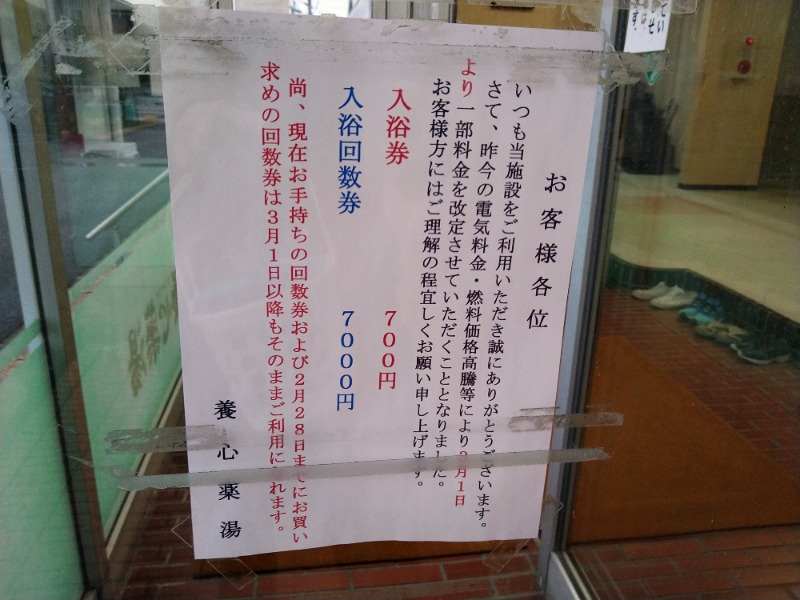 お客様各位
いつも当施設をご利用いただき誠にありがとうございます。
さて、昨今の電気料金・燃料価格高騰等により3月1日
より一部料金を改定させていただくこととなりました。
お客様方にはご理解の程宜しくお願い申し上げます。
入浴券 700円
入浴回数券 7000円
尚、現在お手持ちの回数券および2月28日までにお買い
求めの回数券は3月1日以降もそのままご利用になれます。
養心薬湯